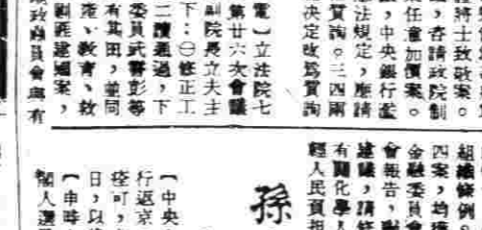 將士致敬案。
，咨請政院制
任意加價案。
，中央銀行濫
法規定，應請
質詢。三四兩
決定改爲質詢
電】立法院七
第廿六次會議
副院長立夫主
下：㊀修正工
二讀通過，下
委員武誓彭等
有其田，並同
產、教育、救
匪建國案，
員會與有
組織條例。
四案，均獲
金融委員會
會報告，
建議，請修
有關化學人
經人民負担
孫
【中央
行返京
痊可，
日，以
【申時
閣人選